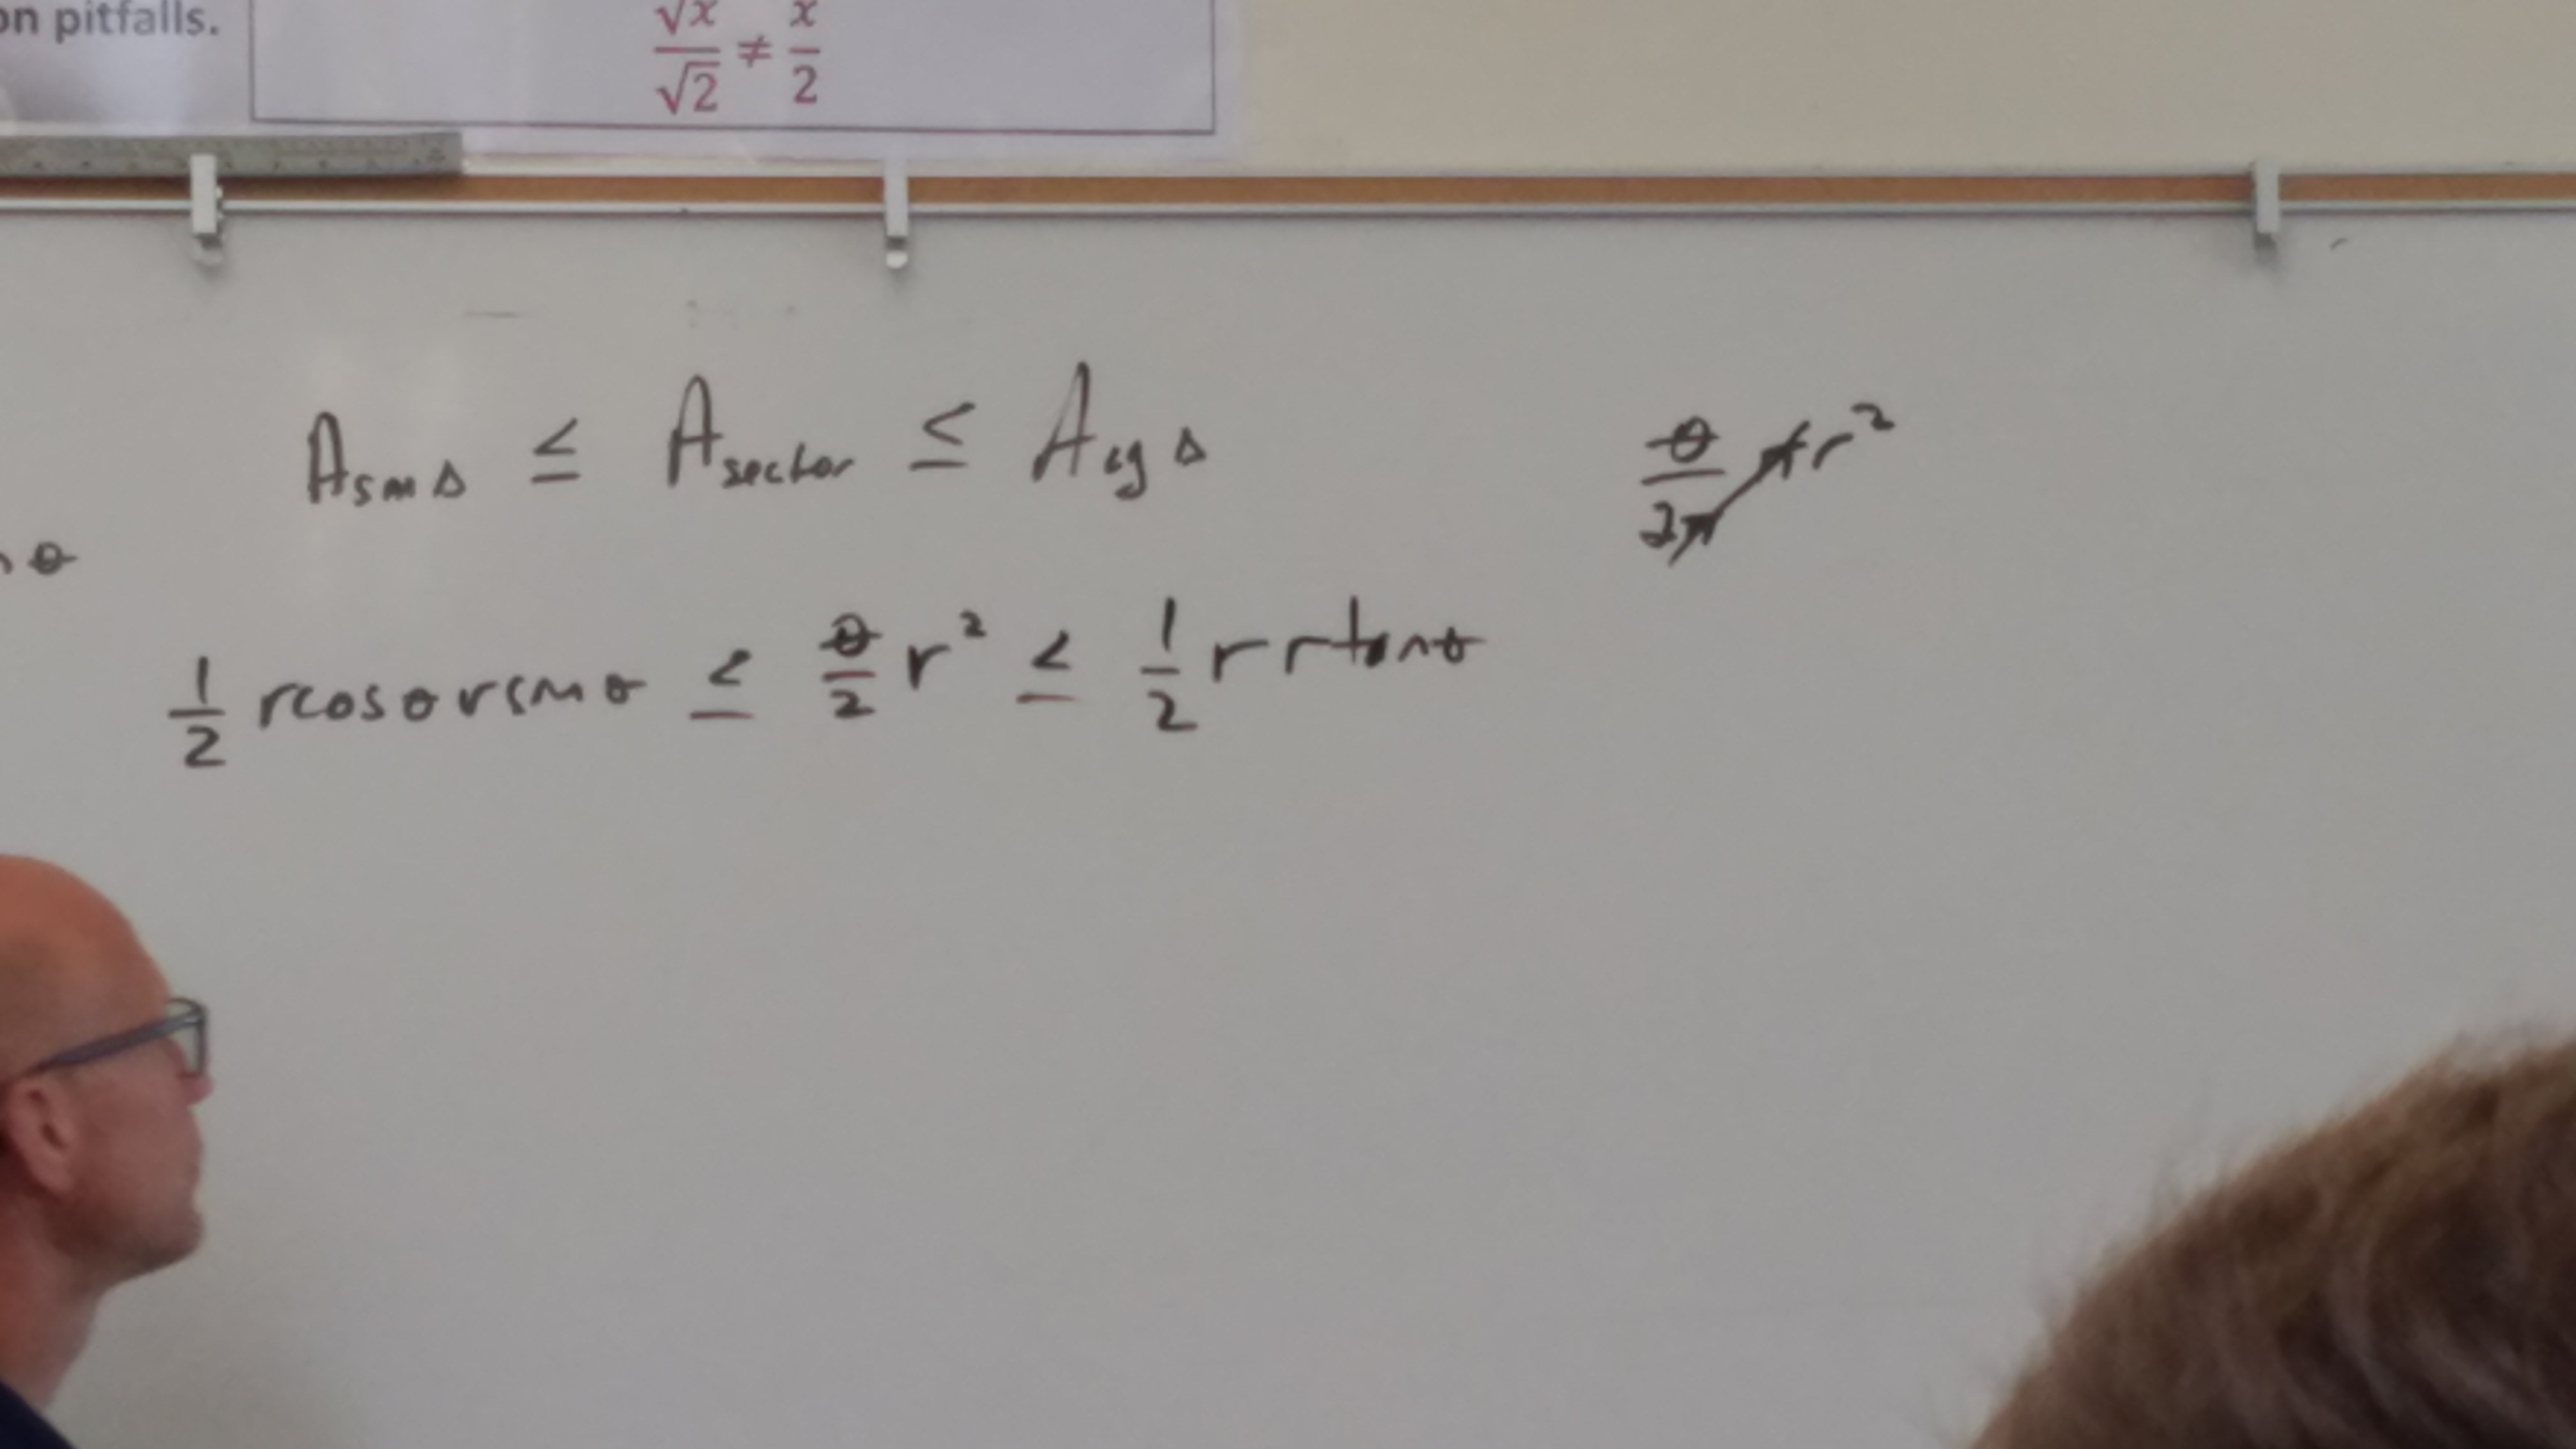 on pitfalls.
√x/√2 ≠ x/2
A sm Δ ≤ A sector ≤ A lg Δ
θ/2π πr²
θ
1/2 rcosθ rsinθ ≤ θ/2 r² ≤ 1/2 r rtanθ